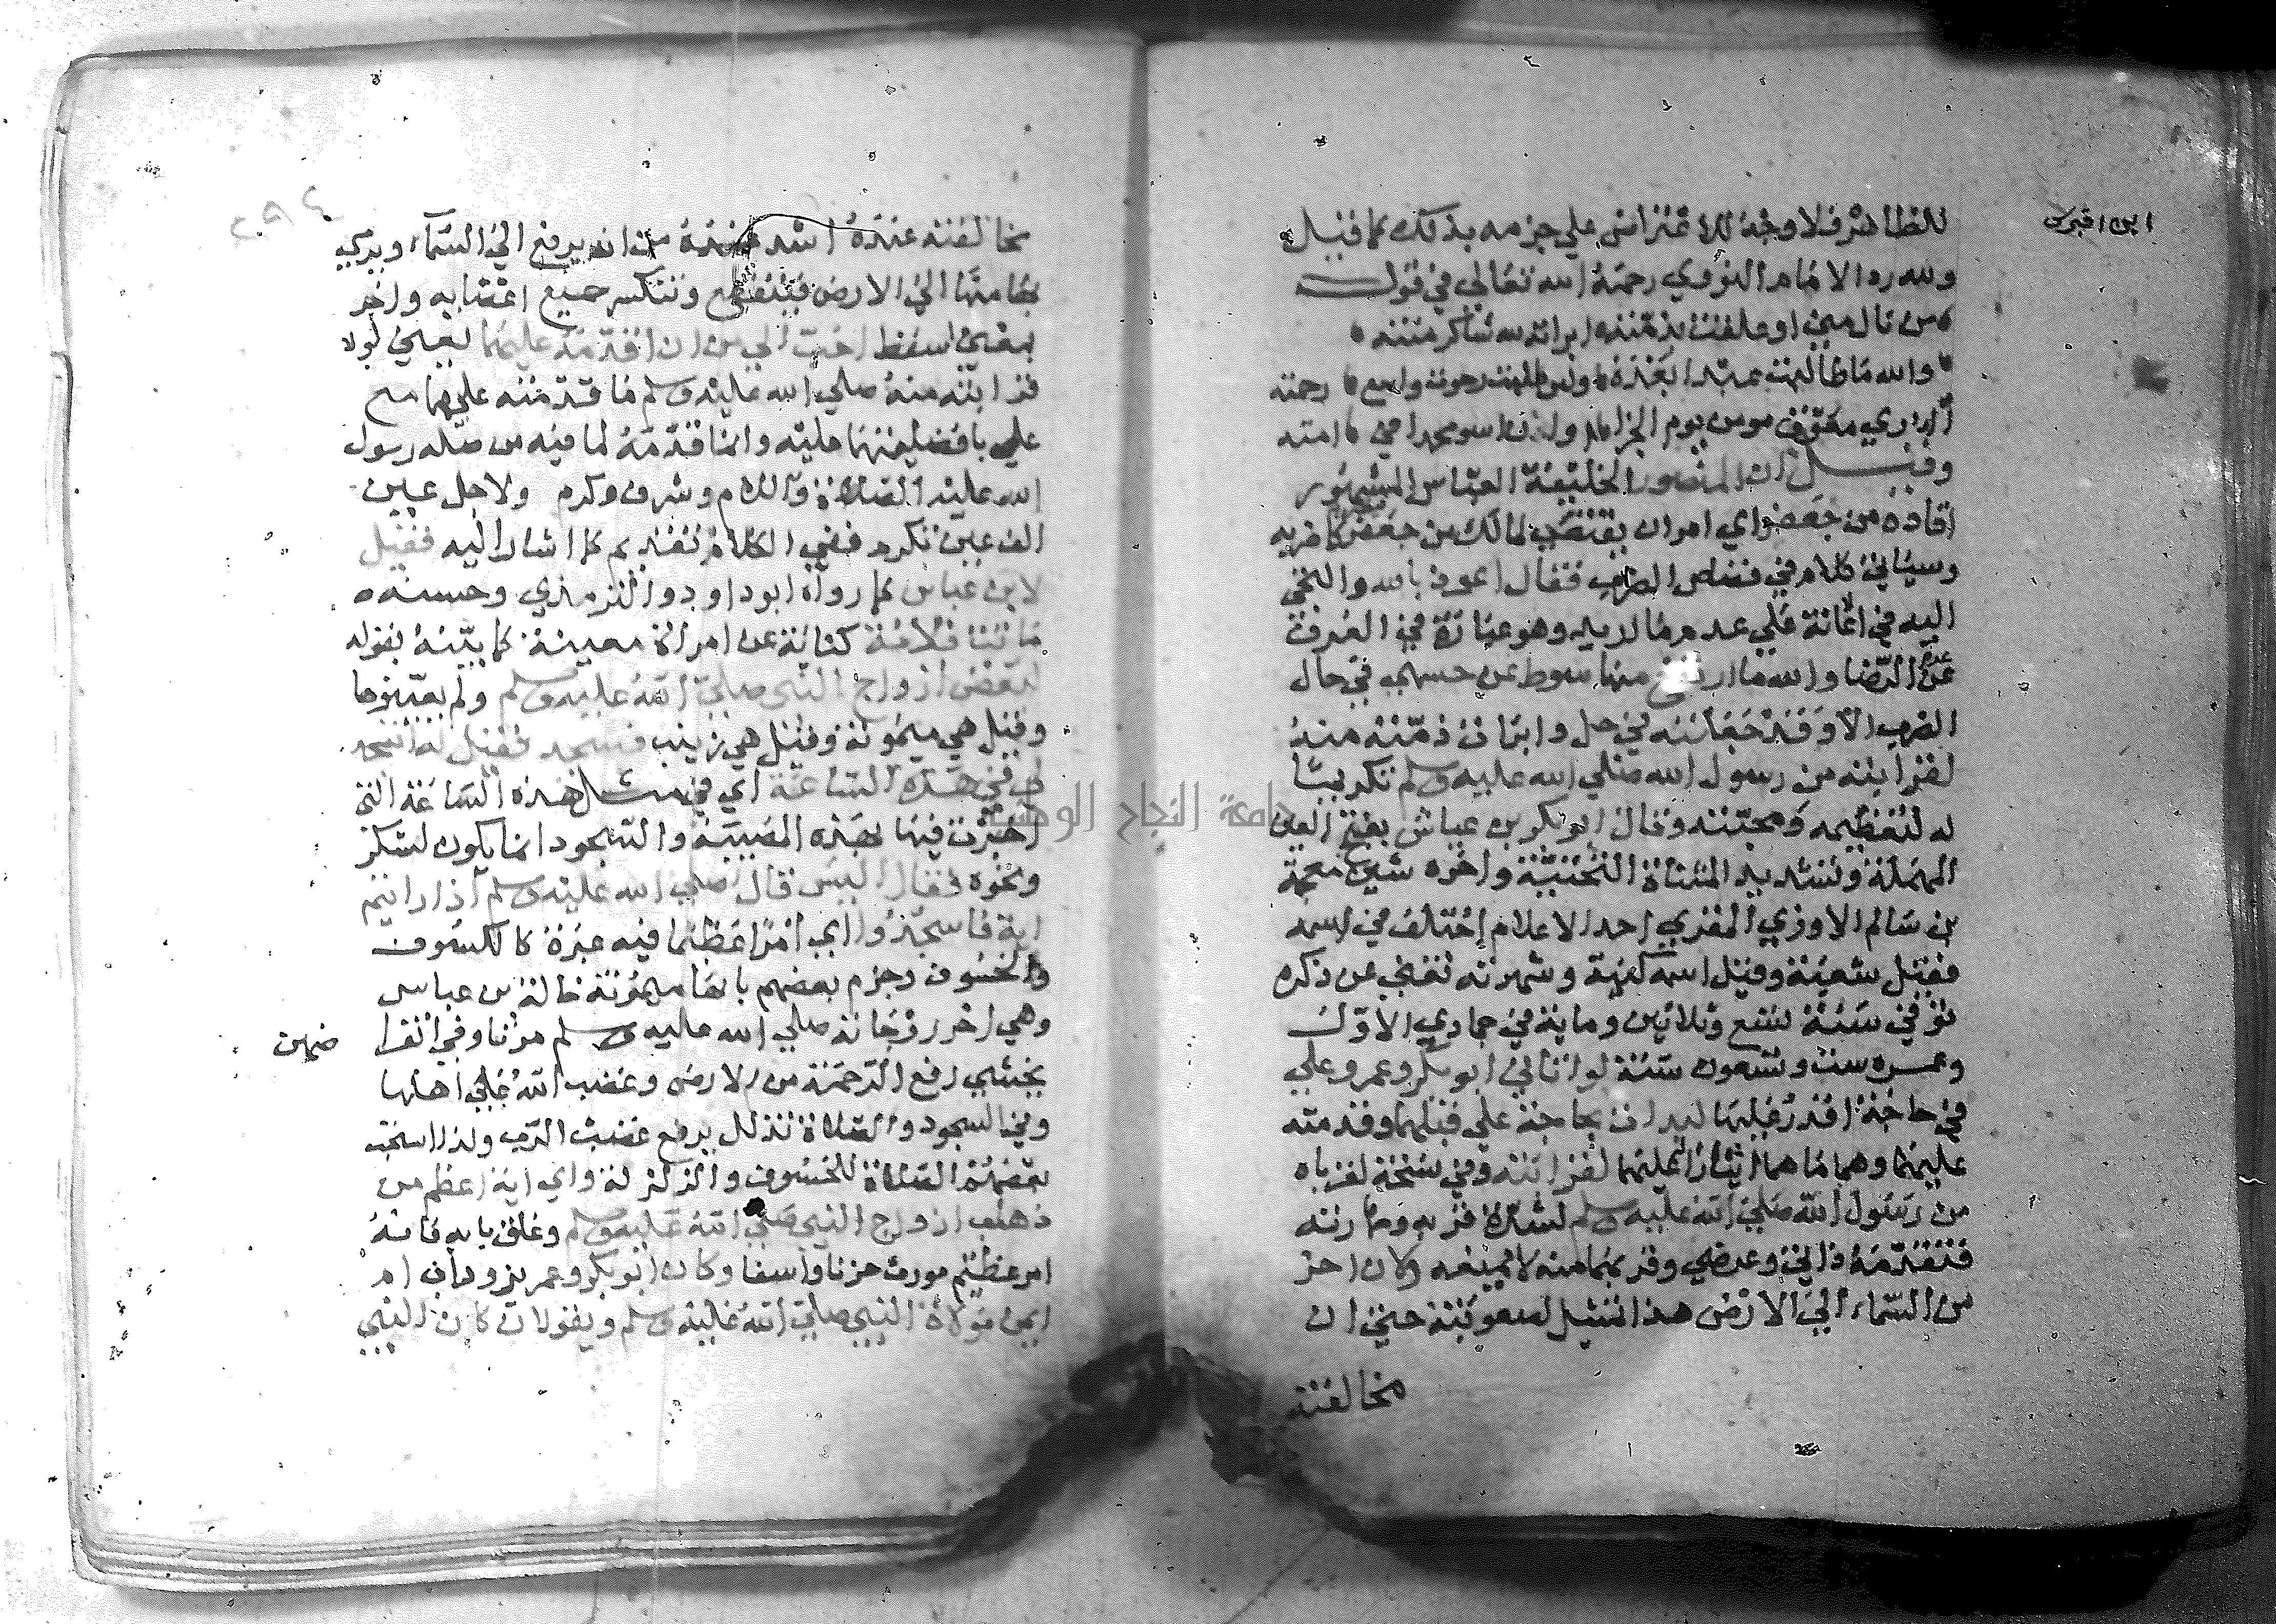 للظاهر فلا وجه للاعتراض علي جزمه بذلك كما قيل
ابن اقبرس
ولله در الامام النووي رحمه الله تعالي في قوله
من نال مني او علقت بذمته ابراته لله شاكر منته
والله ما طالبت عبدا بعده ولن رحمته
اري معوق مومن يوم الجزا ولن اسو محمدا في امته
وقيل ان المنصور الخليفة العباس المشهور
اقاده من جعفر اي امر ان يقتص لمالك من جعفر كما ضربه
وسياتي كلام في قصاص الضرب فقال اعوذ بالله والتجي
اليه في اعانة علي عدم ما اريد وهو عبارة في العرف
عن عدم الرضا والله ما ارتفع منها سوط عن جسمي في حال
الضرب الا وقد جعلته في حل وابرات ذمته منه
لقرابته من رسول الله صلي الله عليه وسلم تكريما
له لتعظيمه ومحبته وقال ابو بكر بن عياش بفتح العين
المهملة وتشديد المثناة التحتية واخره شين معجمة
بن سالم الازدي المقري احد الاعلام اختلف في اسمه
فقيل شعبة وقيل اسمه كنيته وشهرته تغني عن ذكره
توفي سنة تسع وثلاثين وماية في جمادي الاول
وعمره ست وتسعون سنة لو اتاني ابو بكر وعمر وعلي
في حاجة اقدر عليها لبدات بحاجة علي قبلهما وقدمته
عليهما وهما ما هما ايثارا عليهما لقرابته وفي نسخة لقرباه
من رسول الله صلي الله عليه وسلم لشدة قربه وصارته
فتقدمه ذاتي وعرضي وقربهما منه لا يمنعه وكان اخر
من السماء الي الارض هذا تمثيل لصعوبته حتي ان
مخالفته
مخالفته عنده اشد عنده من انه يرفع الي السماء ويرمي
بها منها الي الارض فيتقطع وتتكسر جميع اعضايه واخر
بمعني اسقط احب الي من ان اقدمه عليهما يعني لولا
قرابته منه صلي الله عليه وسلم ما قدمته عليهما مع
علمي بافضليتهما عليه وانما قدمه لما فيه من صلة رسول
الله عليه الصلاة والسلام وشرف وكرم ولاجل عين
الف عين تكرم ففي الكلام تقديم كما اشار اليه فقيل
لابن عباس كما رواه ابو داود والترمذي وحسنه
ماتت فلانة كناية عن امراة معينة كما بينه بقوله
لبعض ازواج النبي صلي الله عليه وسلم ولم يعينوها
وقيل هي ميمونة وقيل هي زينب فسجد فقيل له اتسجد
في هذه الساعة اي في مثل هذه الساعة التي
اخبرت فيها بهذه المصيبة والسجود انما يكون لشكر
ونحوه فقال اليس قال صلي الله عليه وسلم اذا رايتم
اية فاسجدوا اي امرا عظيما فيه عبرة كالكسوف
والخسوف وجزم بعضهم بانها ميمونة خالة بن عباس
وهي اخر زوجاته صلي الله عليه وسلم موتا وفي انقرا
ضهن
يخشي رفع الرحمة من الارض وغضب الله علي اهلها
وفي السجود والصلاة تذلل يرفع غضب الرب ولذا استحب
بعضهم الصلاة للخسوف والزلزلة واي اية اعظم من
ذهاب ازواج النبي صلي الله عليه وسلم وغلق بابه فانه
امر عظيم مورث حزنا واسفا وكان ابو بكر وعمر يزوران ام
ايمن مولاة النبي صلي الله عليه وسلم ويقولان كان النبي
جامعة النجاح الوطنية